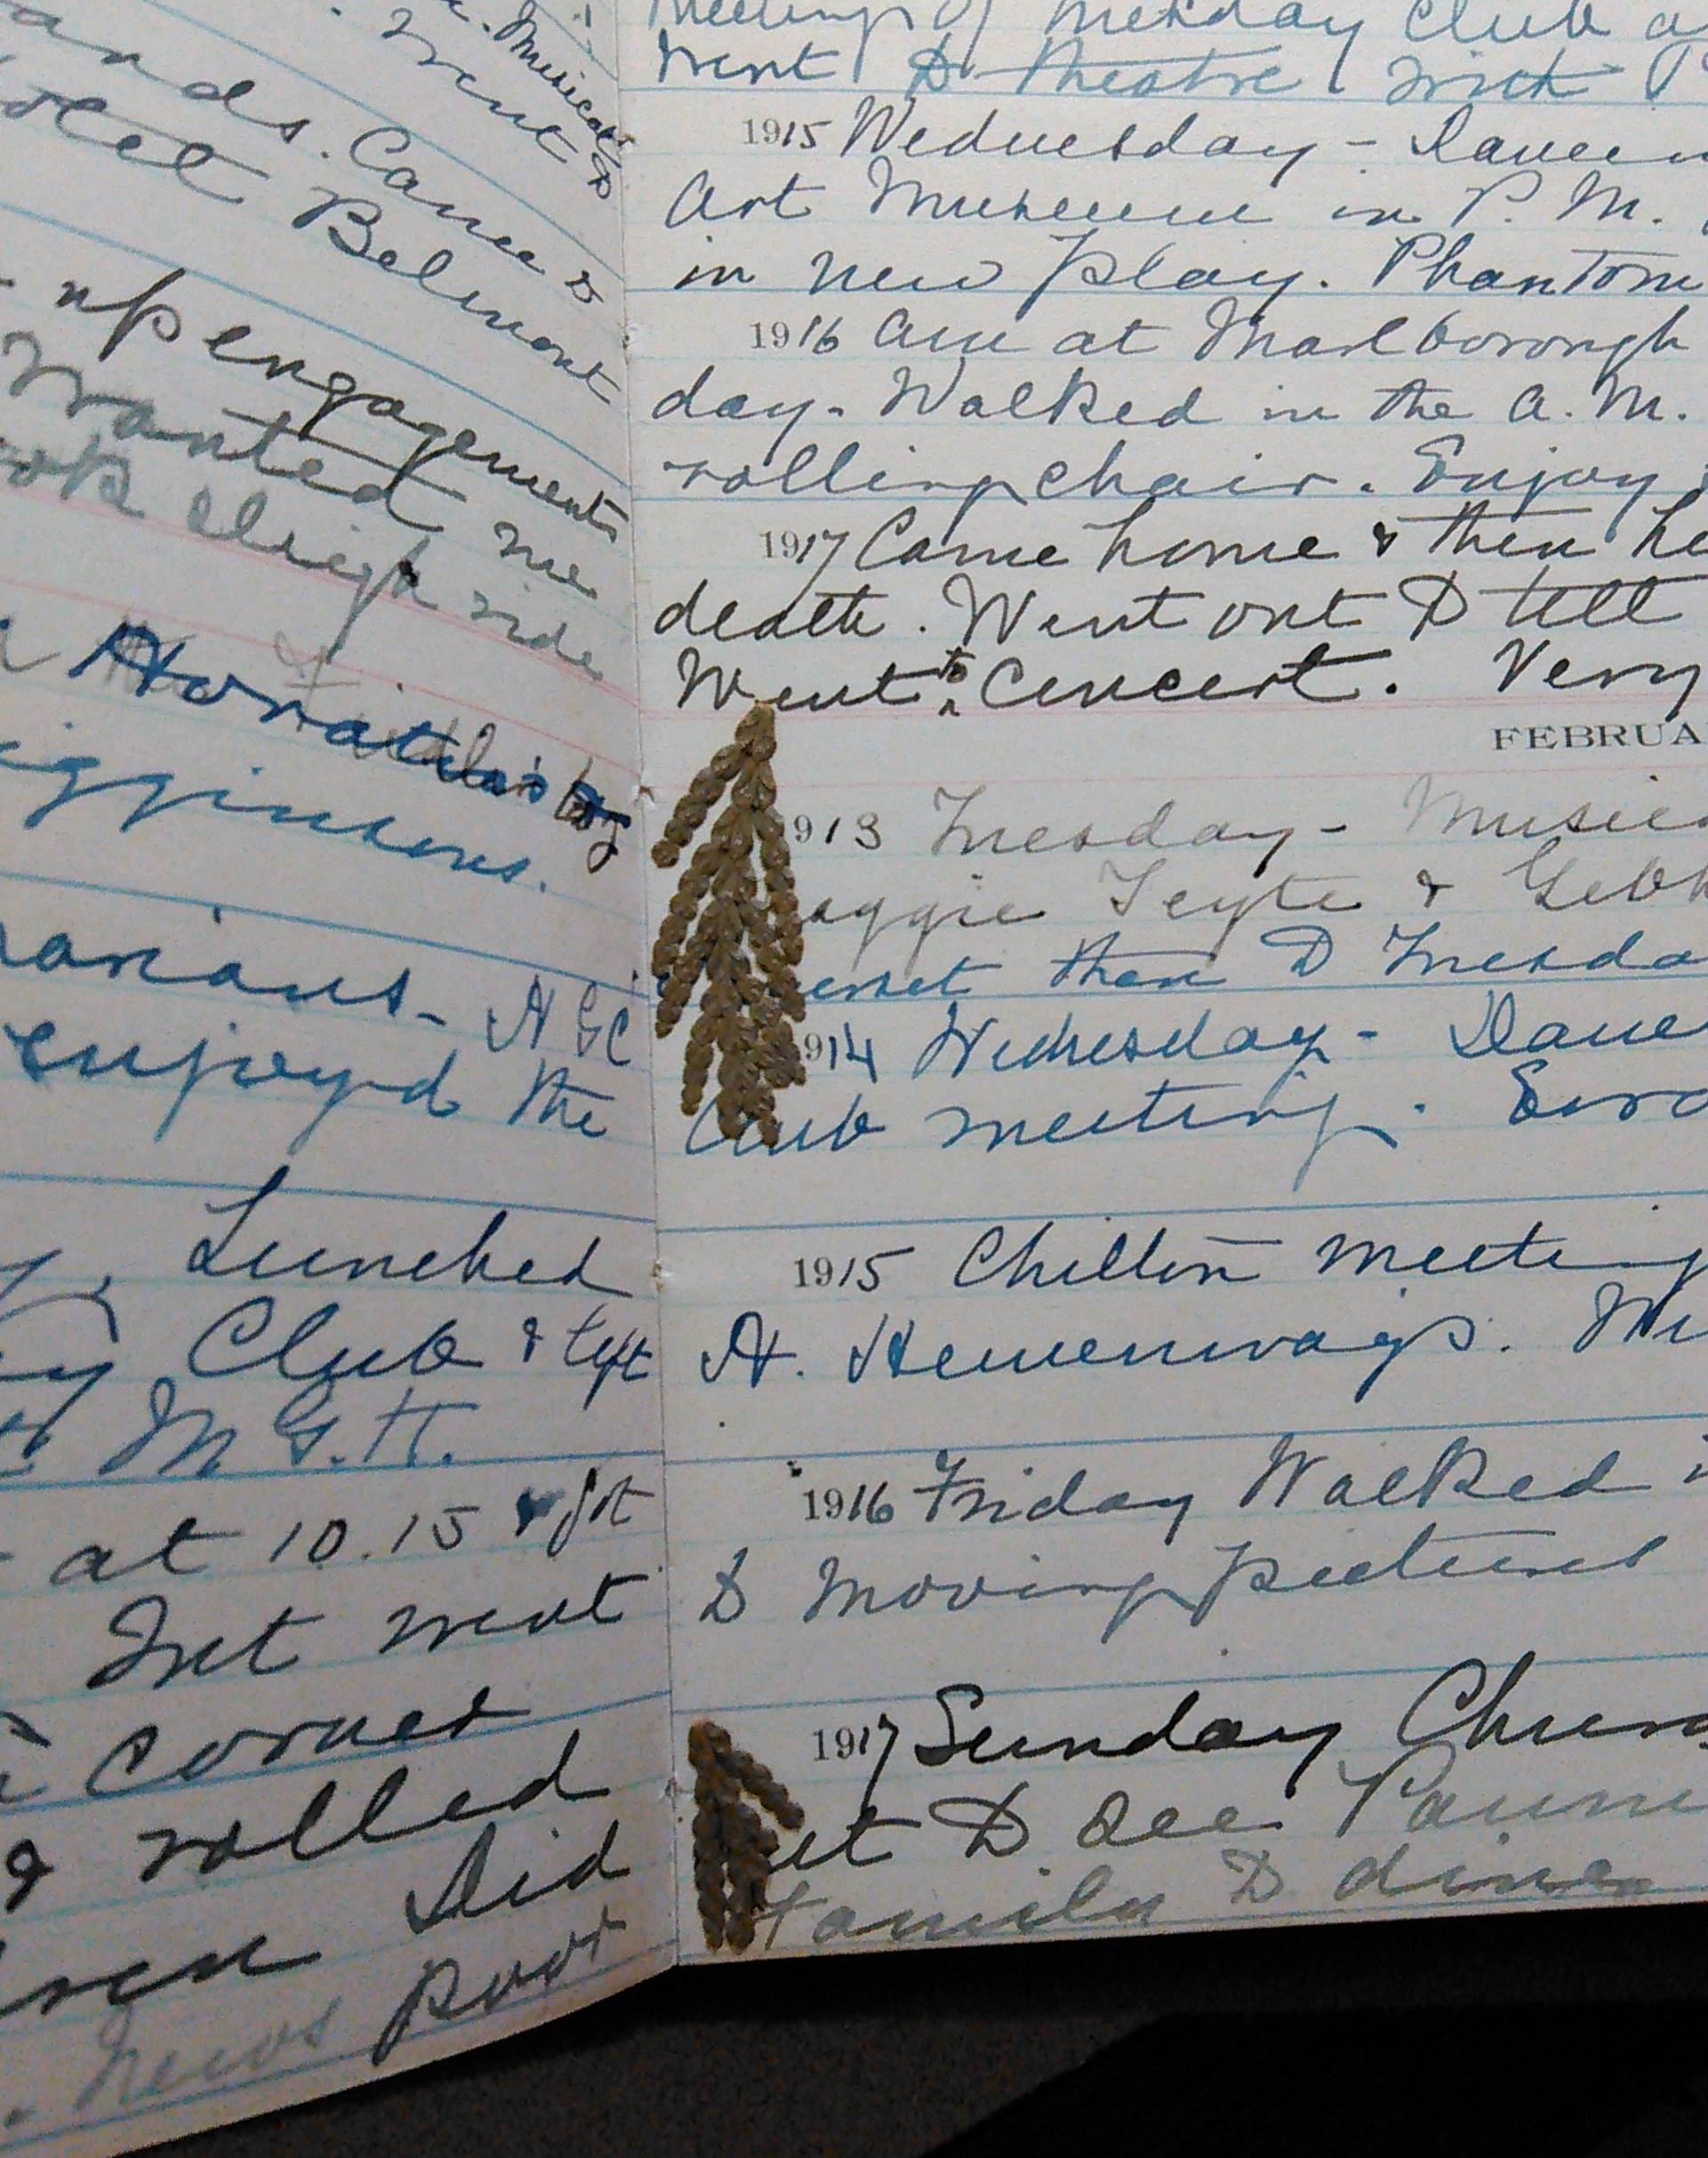 . Musical
went to
ands. Came to
Belmont
up engagements
Wanted me
sleigh ride
Horatio's by
igginsons.
enjoyed the
Lunched
Club & left
M.G.H.
at 10.15 & got
but went
corner
& rolled
Did
News poor
Meeting of Tuesday Club a
Went to theatre with
1915 Wednesday - Dancin
Art Museum in P. M.
in new play. Phantom
1916 Am at Marlborough
day. Walked in the A. M.
rolling chair. Enjoy
1917 Came home & then he
death. Went out to tell
Went to concert. Very
FEBRUA
1913 Tuesday - Music
aggie Teyte & Gebh
then to Tuesda
914 Wednesday - Danc
Club meeting.
1915 Chilton meeting
A. Hemenway's.
1916 Friday Walked i
to moving pictures
1917 Sunday Church
to see
Family to dinner